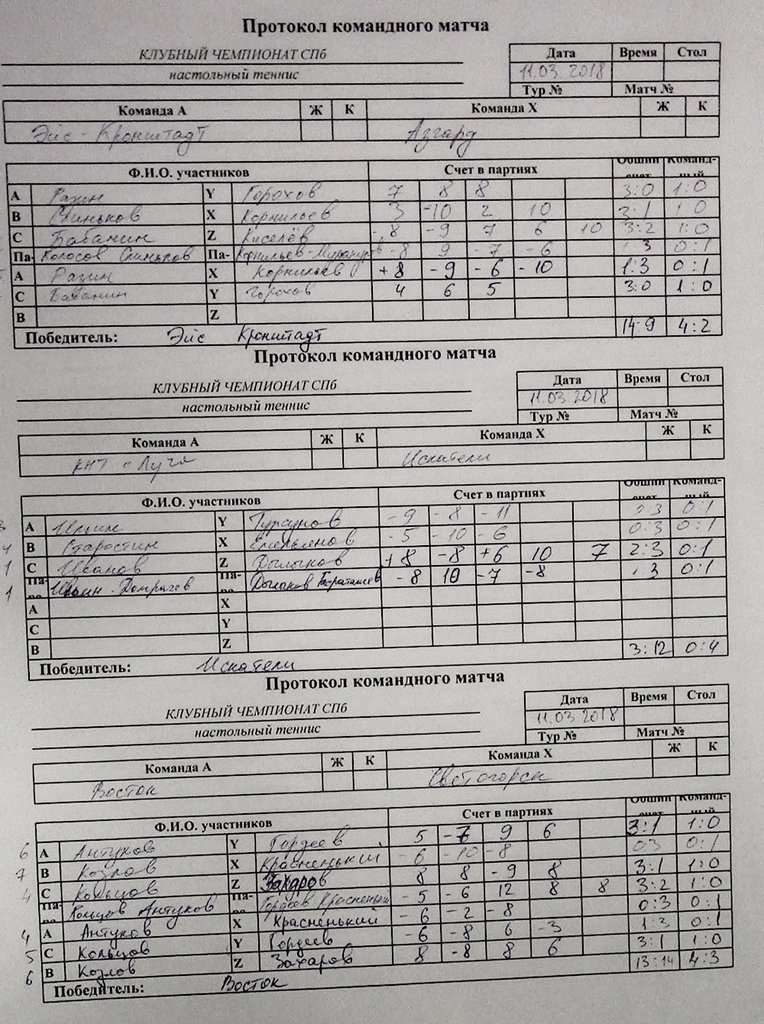 Протокол командного матча
КЛУБНЫЙ ЧЕМПИОНАТ СПб Дата Время Стол
настольный теннис 11.03.2018
Тур № Матч №
Команда А Ж К Команда Х Ж К
Эйс-Кронштадт Азгард
Ф.И.О. участников Счет в партиях Общий счет Команд-ный
A Разин Y Горохов 7 8 8 3:0 1:0
B Спиньков X Корнильев 3 -10 2 10 3:1 1:0
C Бабанин Z Киселёв -8 -9 7 6 10 3:2 1:0
Па- Колосов Спиньков Па- Корнильев- -8 9 -7 -6 1:3 0:1
A Разин X Корнильев +8 -9 -6 -10 1:3 0:1
C Бабанин Y Горохов 4 6 5 3:0 1:0
B Z
Победитель: Эйс Кронштадт 14:9 4:2
Протокол командного матча
КЛУБНЫЙ ЧЕМПИОНАТ СПб Дата Время Стол
настольный теннис 11.03.2018
Тур № Матч №
Команда А Ж К Команда Х Ж К
Луга Искатели
Ф.И.О. участников Счет в партиях Общий счет Команд-ный
A Y -9 -8 -11 0:1
B Старостин X Емельянов -5 -10 -6 0:3 0:1
1 C Иванов Z +8 -8 +6 10 7 2:3 0:1
1 Па-ра Па-ра -8 10 -7 -8 1:3 0:1
A X
C Y
B Z 3:12 0:4
Победитель: Искатели
Протокол командного матча
КЛУБНЫЙ ЧЕМПИОНАТ СПб Дата Время Стол
настольный теннис 11.03.2018
Тур № Матч №
Команда А Ж К Команда Х Ж К
Восток Светогорск
Ф.И.О. участников Счет в партиях Общий счет Команд-ный
6 A Антуков Y Гордеев 5 -7 9 6 3:1 1:0
7 B Козлов X Красненький -6 -10 -8 03 0:1
4 C Кольцов Z Захаров 8 8 -9 8 3:1 1:0
Па-ра Кольцов Антуков Па-ра Гордеев Красненький -5 -6 12 8 8 3:2 1:0
4 A Антуков X Красненький -6 -2 -8 0:3 0:1
5 C Кольцов Y Гордеев -6 -8 6 -3 1:3 0:1
6 B Козлов Z Захаров 8 -8 8 6 3:1 1:0
Победитель: Восток 13:14 4:3